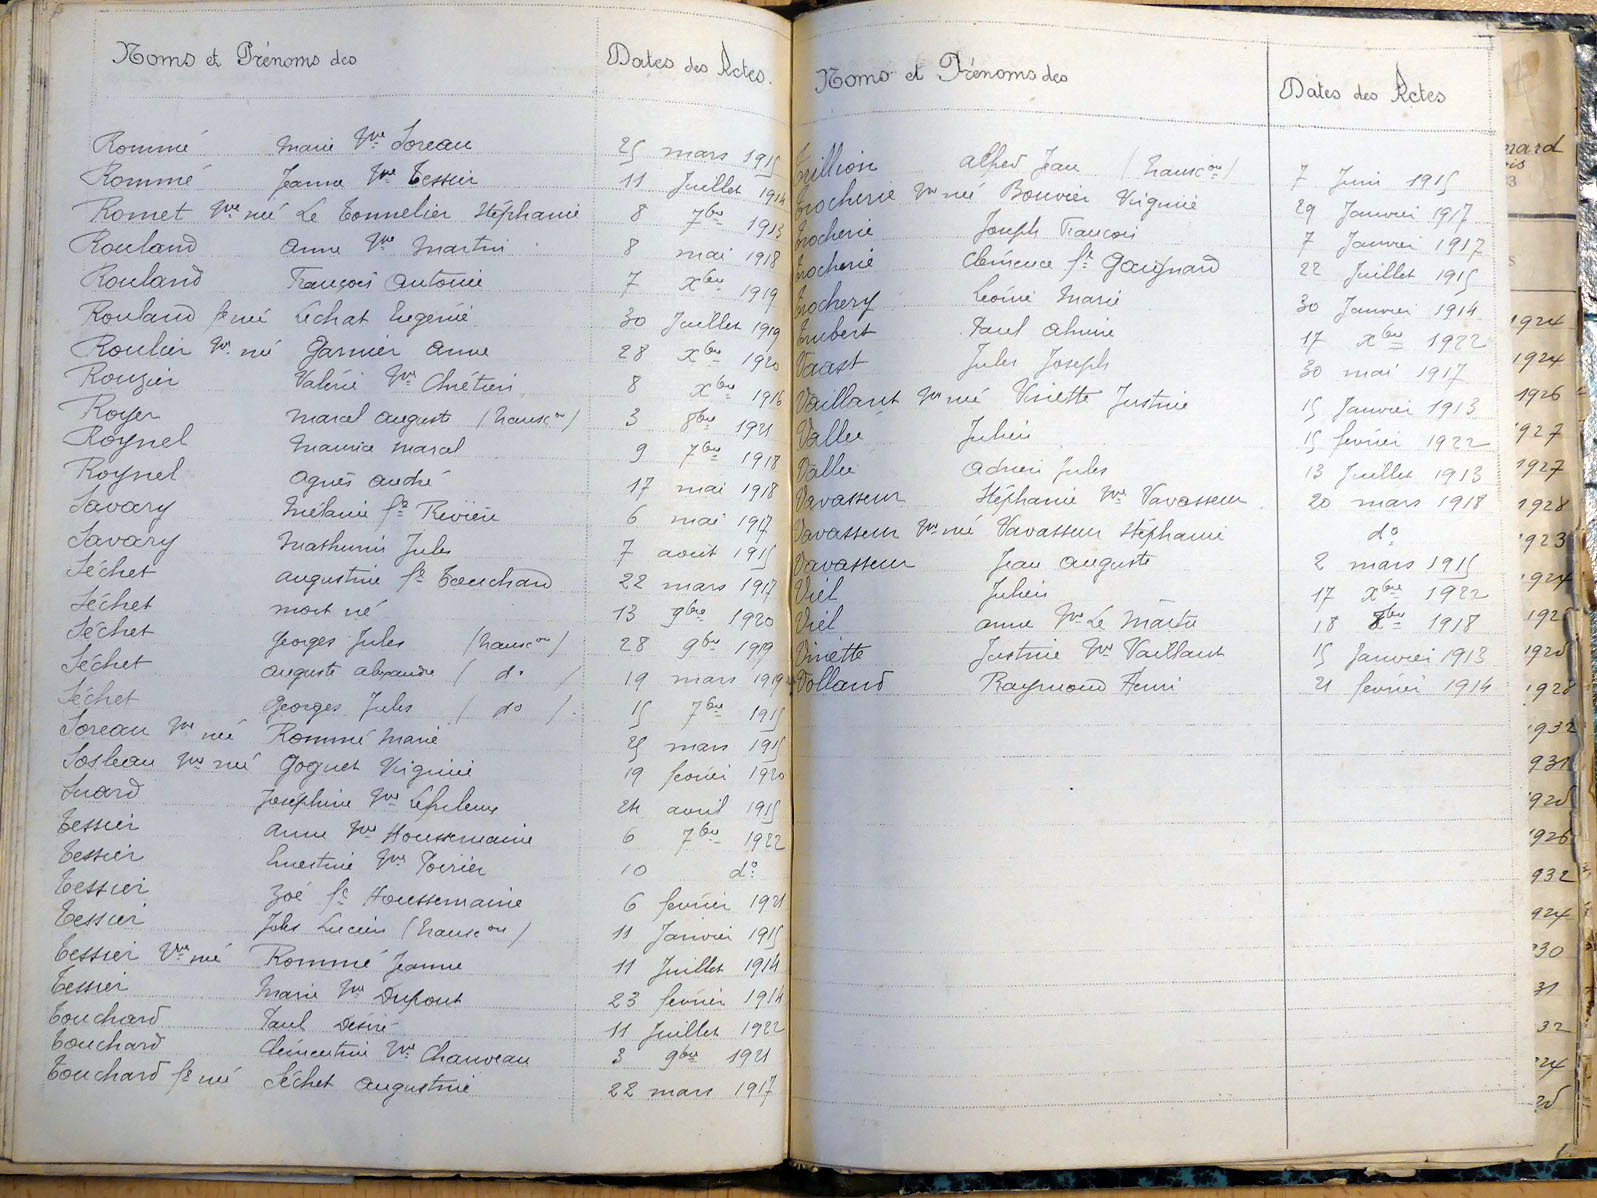 Noms et Prénoms des Dates des Actes.
Rommé Marie Vve Soreau 25 mars 1915
Rommé Jeanne Vve Tessier 11 Juillet 1914
Romet Vve née Le Tonnelier Stéphanie 8 7bre 1913
Rouland Anne Vve Martin 8 mai 1918
Rouland François Antoine 7 Xbre 1919
Rouland fe née Lechat Eugénie 30 Juillet 1919
Roulier Vve née Garnier Anne 28 Xbre 1920
Rouzier Valérie Vve Chrétien 8 Xbre 1916
Royer Marcel Auguste (transcon) 3 8bre 1921
Roynel Maurice Marcel 9 7bre 1918
Roynel Agnès André 17 mai 1918
Savary Mélanie fe Rivière 6 mai 1917
Savary Mathurin Jules 7 août 1915
Séchet Augustine fe Touchard 22 mars 1917
Séchet mort né 13 9bre 1920
Séchet Georges Jules (transcon) 28 9bre 1919
Séchet Auguste Alexandre ( do ) 19 mars 1919
Séchet Georges Jules ( do ) 15 7bre 1915
Soreau Vve née Rommé Marie 25 mars 1915
Sosleau Vve née Goguet Virginie 19 février 1920
Suard Joséphine Vve 24 avril 1915
Tessier Anne Vve Houssemaine 6 7bre 1922
Tessier Ernestine Vve Poirier 10 do
Tessier Zoé fe Houssemaine 6 février 1921
Tessier Jules Lucien (transcon) 11 Janvier 1915
Tessier Vve née Rommé Jeanne 11 Juillet 1914
Tessier Marie Vve Dupont 23 février 1914
Touchard Paul Désiré 11 Juillet 1922
Touchard Clémentine Vve Chauveau 3 9bre 1921
Touchard fe née Séchet Augustine 22 mars 1917
Noms et Prénoms des Dates des Actes
Trillion Alfred Jean (transcon) 7 Juin 1915
Trocherie Vve née Bouvier Virginie 29 Janvier 1917
Trocherie Joseph François 7 Janvier 1917
Trocherie Clémence fe Gougnard 22 Juillet 1915
Trochery Léonie Marie 30 Janvier 1914
Trubert Paul Aimée 17 Xbre 1922
Vaast Jules Joseph 30 mai 1917
Vaillant Vve née Viniette Justine 15 Janvier 1913
Vallée Julien 15 février 1922
Vallée Adrien Jules 13 Juillet 1913
Vavasseur Stéphanie Vve Vavasseur 20 mars 1918
Vavasseur Vve née Vavasseur Stéphanie do
Vavasseur Jean Auguste 2 mars 1915
Viel Julien 17 Xbre 1922
Viel Anne Vve Le Maître 18 8bre 1918
Viniette Justine Vve Vaillant 15 Janvier 1913
Volland Raymond Henri 21 février 1914
1924
1924
1926
1927
1927
1928
1923
1924
1932
1926
932
924
30
31
32
24